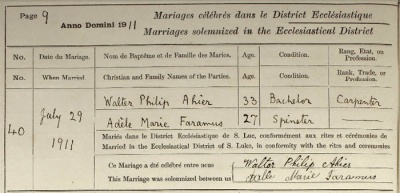 Page 9
Anno Domini 1911
Mariages célébrés dans le District Ecclésiastique
Marriages solemnized in the Ecclesiastical District
No. Date du Mariage. Nom de Baptême et de Famille des Mariés. Age. Condition. Rang, Etat, ou Profession.
No. When Married. Christian and Family Names of the Parties. Age. Condition. Rank, Trade, or Profession.
40 July 29 1911
Walter Philip Ahier 33 Bachelor Carpenter
Adèle Marie Faramus 27 Spinster
Mariés dans le District Ecclésiastique de S. Luc, conformément aux rites et cérémonies de
Married in the Ecclesiastical District of S. Luke, in conformity with the rites and ceremonies
Ce Mariage a été célébré entre nous Walter Philip Ahier
This Marriage was solemnized between us Adèle Marie Faramus